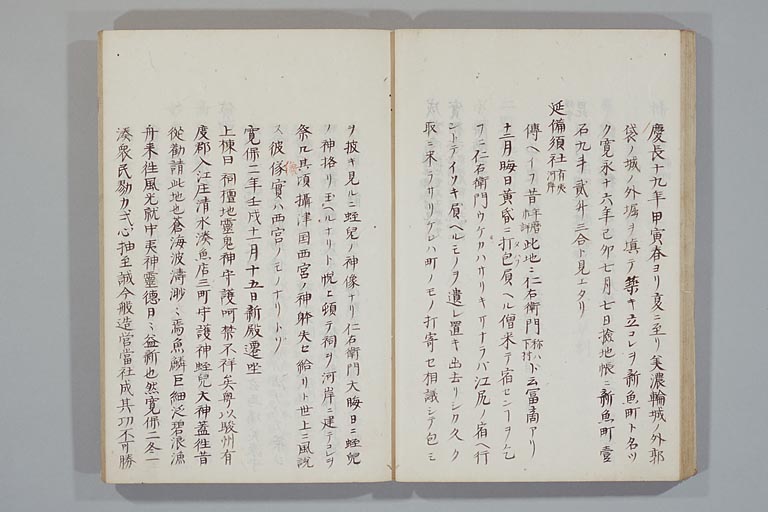 慶長十九年甲寅春ヨリ夏ニ至リ美濃輪城ノ外郭
袋ノ城ノ外堀ヲ填テ築キ立コレヲ新魚町ト名ツ
ク寛永十六年己卯七月七日検地帳ニ新魚町壹
石九斗貳升三合ト見エタリ
延備須社有夷河岸
傳ヘイフ昔年暦不詳此地ニ仁右衛門称ハ下村ト云冨商アリ
十二月晦日黄昏ニ打包負ヘル僧来テ宿セン
フニ仁右衛門ウケカハサリキサナラバ江尻ノ宿ヘ行
ントテイソキ負ヘルモノヲ遺レ置キ出去リシク久ク
取ニ来ラサリケレハ町ノモノ打寄セ相議シテ包ミ
ヲ披キ見ルニ蛭児ノ神像ナリ仁右衛門大晦日ニ蛭児
ノ神格リ玉ヘルナリト悦ヒ頓テ祠ヲ河岸ニ建テコレヲ
祭ル其頃攝津国西宮ノ神躰失セ給リト世上ニ風説
ス彼像實ハ西宮ノモノナリトソ
寛保二年壬戌十一月十五日新殿遷坐
上棟曰祠壇地靈鬼神守護呵禁不祥矣粤以駿州有
度郡入江庄清水湊魚店三町守護神蛭兒大神蓋往昔
從勧請此地也蒼海波濤渺々焉魚鱗巨細泛碧浪漁
舟来往風光就中夷神靈德日々益新也然寛保二冬一
湊衆民勠力弍心抽至誠今般造営當社成其功不可勝